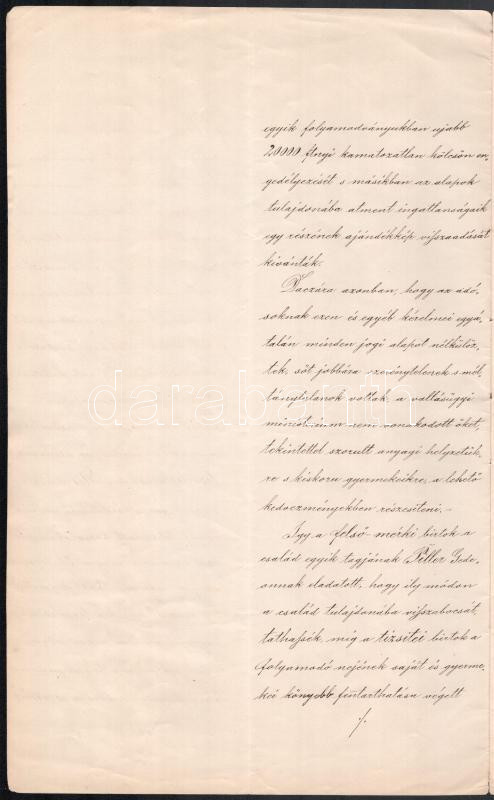 egyik folyamodványukban ujabb
20000 ftnyi kamatozatlan kölcsön en-
gedélyezését s másikban az alapok
tulajdonába átment ingatlanságaik
egy részének ajándékkép visszaadását
kivánták.
Daczára azonban, hogy az adó-
soknak ezen és egyéb kérelmei egyá-
talán minden jogi alapot nélkülöz-
tek, sőt jobbára szerénytelenek s mél-
tánytalanok voltak, a vallásügyi
ministerium nem vonakodott őket,
tekintettel szorult anyagi helyzetük-
re s kiskoru gyermekeikre, a lehető
kedvezményekben részesiteni.-
Igy a felső-mérki birtok a
család egyik tagjának Péller Gede-
onnak eladatott, hogy ily módon
a család tulajdonába visszabocsát-
tathassék, mig a tizsitei birtok a
folyamodó nejének saját és gyerme-
kei könyebb fentarthatása végett
./.
darabanth